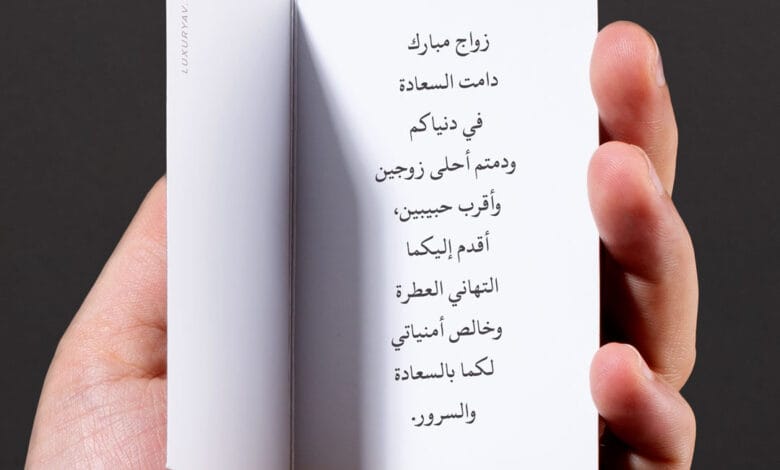 LUXURYAV.
زواج مبارك
دامت السعادة
في دنياكم
ودمتم أحلى زوجين
وأقرب حبيبين،
أقدم إليكما
التهاني العطرة
وخالص أمنياتي
لكما بالسعادة
والسرور.